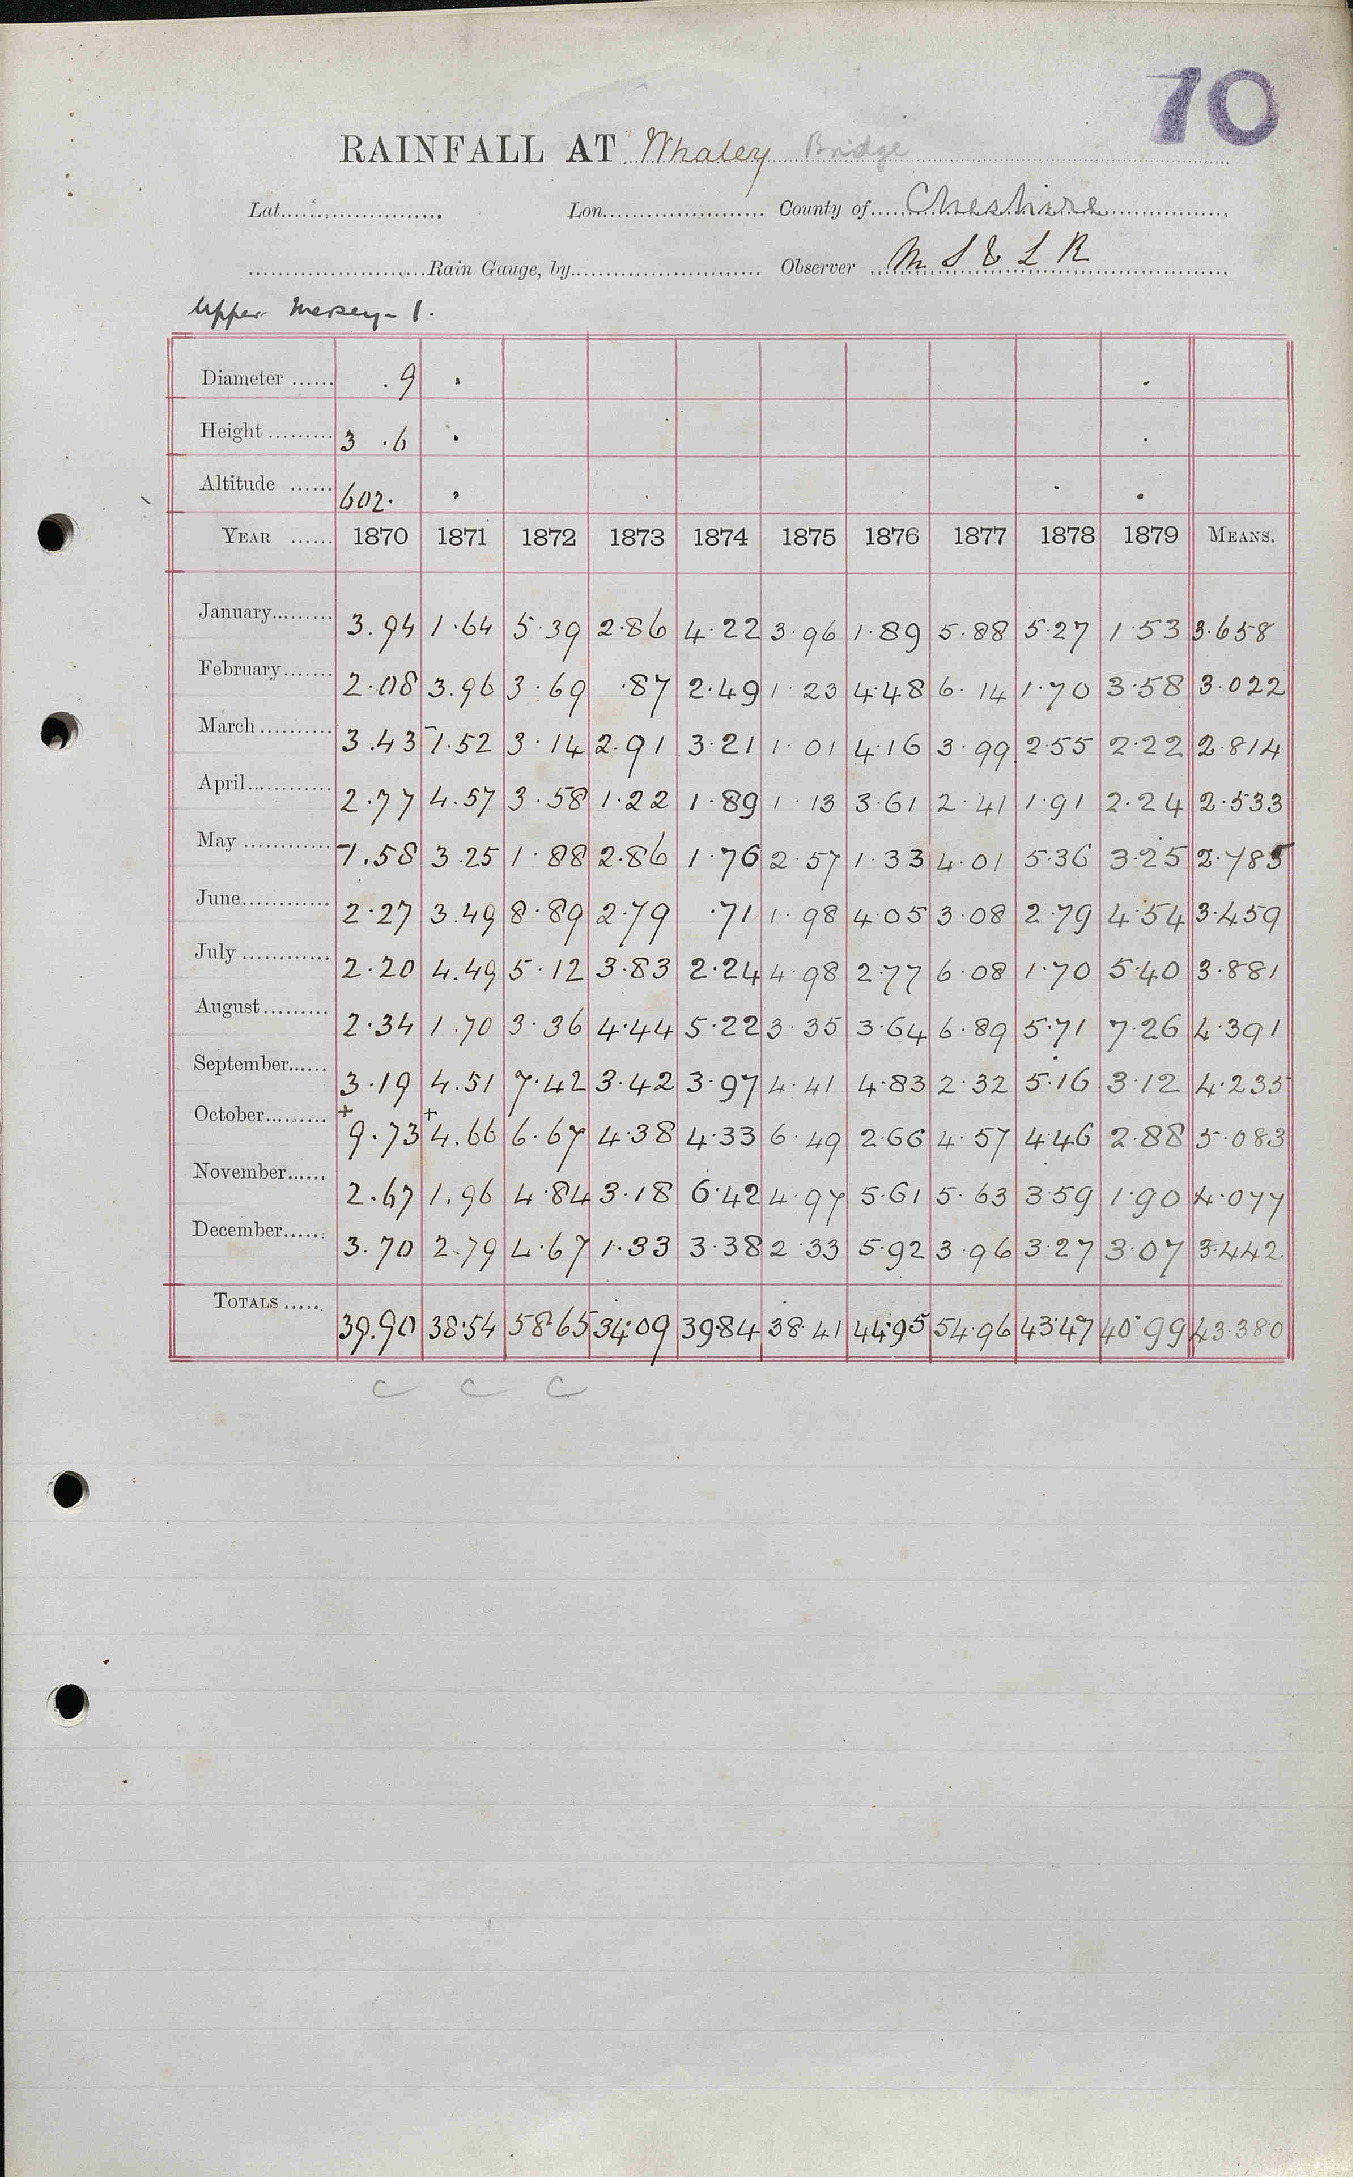 70
RAINFALL AT Whaley Bridge
Lat. Lon. County of Cheshire
Rain Gauge, by Observer M S & L R
Upper Mersey - 1.
Diameter .9
Height 3 .6
Altitude 602.
YEAR 1870 1871 1872 1873 1874 1875 1876 1877 1878 1879 MEANS.
January 3.94 1.64 5.39 2.86 4.22 3.96 1.89 5.88 5.27 1.53 3.658
February 2.08 3.96 3.69 .87 2.49 1.23 4.48 6.14 1.70 3.58 3.022
March 3.43 -1.52 3.14 2.91 3.21 1.01 4.16 3.99 2.55 2.22 2.814
April 2.77 4.57 3.58 1.22 1.89 1.13 3.61 2.41 1.91 2.24 2.533
May -1.58 3.25 1.88 2.86 1.76 2.57 1.33 4.01 5.36 3.25 2.785
June 2.27 3.49 8.89 2.79 .71 1.98 4.05 3.08 2.79 4.54 3.459
July 2.20 4.49 5.12 3.83 2.24 4.98 2.77 6.08 1.70 5.40 3.881
August 2.34 1.70 3.36 4.44 5.22 3.35 3.64 6.89 5.71 7.26 4.391
September 3.19 4.51 7.42 3.42 3.97 4.41 4.83 2.32 5.16 3.12 4.235
October +9.73 +4.66 6.67 4.38 4.33 6.49 2.66 4.57 4.46 2.88 5.083
November 2.67 1.96 4.84 3.18 6.42 4.97 5.61 5.63 3.59 1.90 4.077
December 3.70 2.79 4.67 1.33 3.38 2.33 5.92 3.96 3.27 3.07 3.442
TOTALS 39.90 38.54 58.65 34.09 39.84 38.41 44.95 54.96 43.47 40.99 43.380
C C C